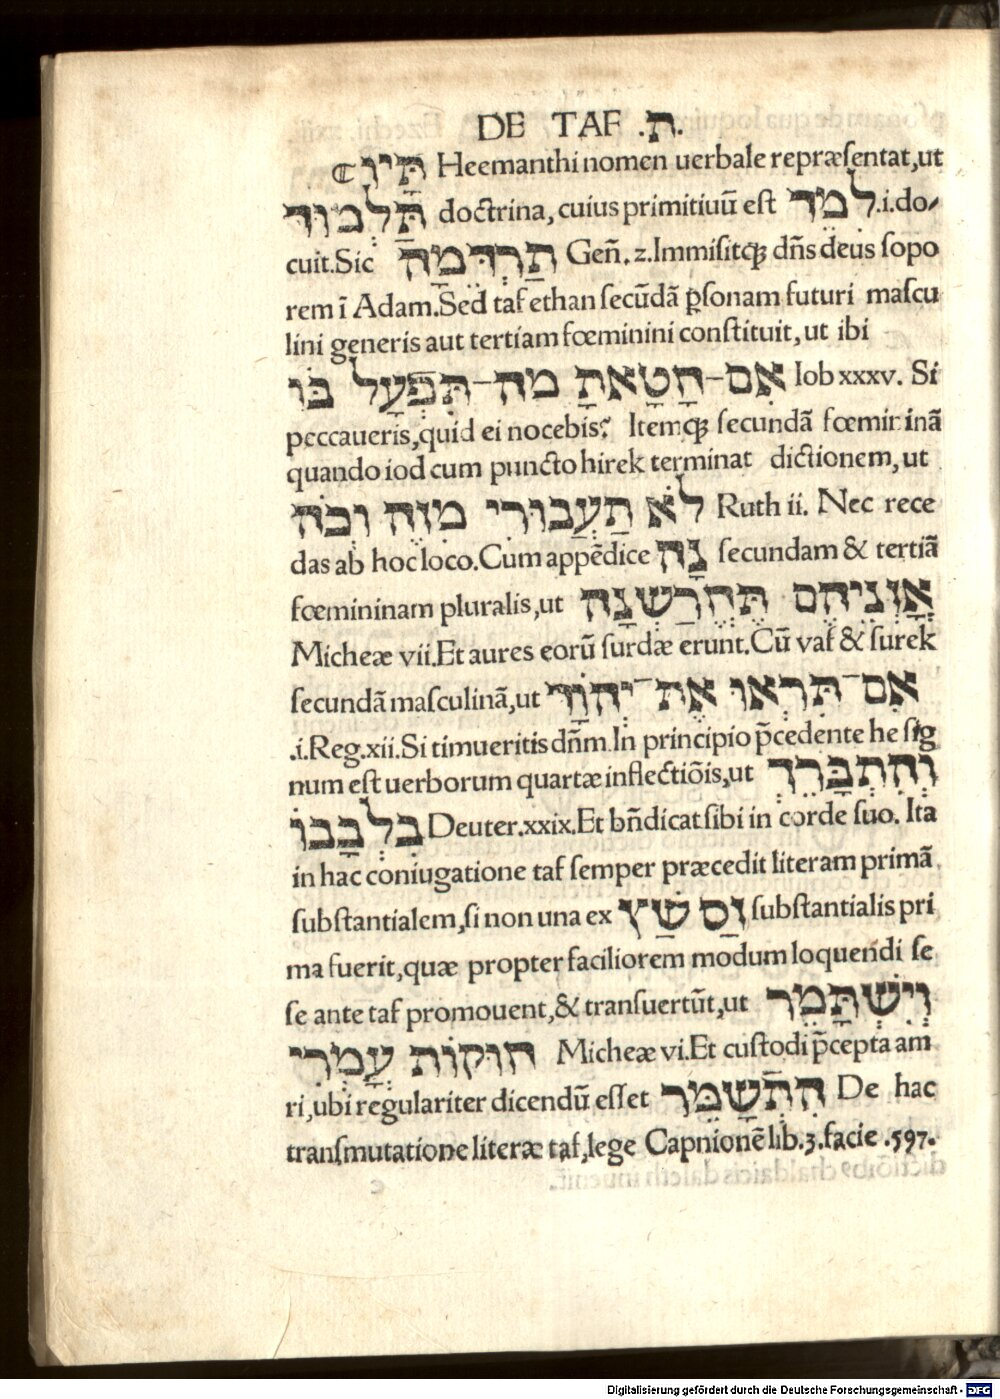 DE TAF .ת.
☾ תָּיו Heemanthi nomen uerbale repræſentat,ut
תַּלְמוּד doctrina, cuius primitiuũ eſt לָמַד .i.do⸗
cuit.Sic תַּרְדֵּמָה Geñ. 2. Immiſitqꝫ dñs deus ſopo
rem ĩ Adam.Sed taf ethan ſecũdã ꝑſonam futuri maſcu
lini generis aut tertiam fœminini conſtituit, ut ibi
אִם־חָטָאתָ מַה־תִּפְעָל בּוֹ Iob xxxv. Si
peccaueris,quid ei nocebis? Itemqꝫ ſecundã fœmininã
quando iod cum puncto hirek terminat dictionem, ut
לֹא תַעֲבוּרִי מִזֶּה וְכֹה Ruth ii. Nec rece
das ab hoc loco. Cum appẽdice נָה ſecundam & tertiã
fœmininam pluralis, ut אָזְנֵיהֶם תֶּחֱרַשְׁנָה
Micheæ vii.Et aures eorũ ſurdæ erunt.Cũ vaf & ſurek
ſecundã maſculinã,ut אִם־תִּרְאוּ אֶת־יְהוָֹה
.i.Reg.xii.Si timueritis dñm.In principio p̃cedente he ſig
num eſt uerborum quartæ inflectiõis,ut וְהִתְבָּרֵךְ
בִלְבָבוֹ Deuter.xxix.Et bñdicat ſibi in corde ſuo. Ita
in hac coniugatione taf ſemper præcedit literam primã
ſubſtantialem,ſi non una ex זַס שַׁץ ſubſtantialis pri
ma fuerit,quæ propter faciliorem modum loquendi ſe
ſe ante taf promouent,& tranſuertũt,ut וְיִשְׁתַּמֵּר
חוּקוֹת עָמְרִי Micheæ vi.Et cuſtodi p̃cepta am
ri,ubi regulariter dicendũ eſſet הִתְשַׁמֵּר De hac
tranſmutatione literæ taf,lege Capnionẽ lib.3.facie .597.
Digitalisierung gefördert durch die Deutsche Forschungsgemeinschaft - DFG